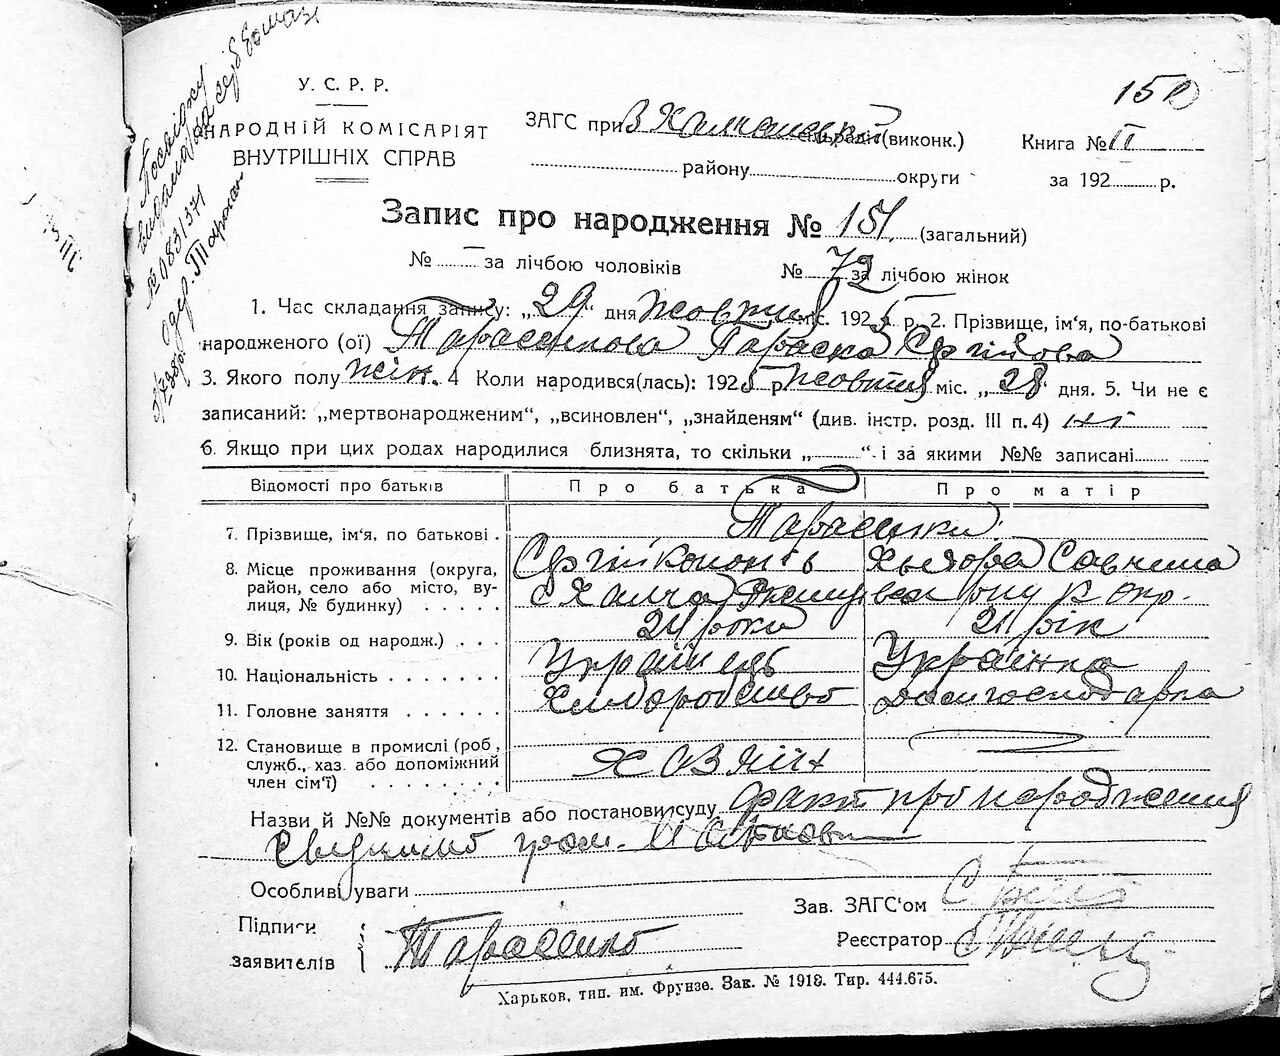 150
У. С. Р. Р.
НАРОДНІЙ КОМІСАРІЯТ
ВНУТРІШНІХ СПРАВ
ЗАГС при (виконк.)
району округи
Книга № II
за 192 р.
Запис про народження № 151 (загальний)
№ — за лічбою чоловіків № 72 за лічбою жінок
1. Час складання запису: „29“ дня жовтня міс. 1925 р. 2. Прізвище, ім'я, по-батькові
народженого (ої) Тарасенкова Параска Сргійова
3. Якого полу жін. 4 Коли народився(лась): 1925 р жовтня міс. „28“ дня. 5. Чи не є
записаний: „мертвонародженим“, „всиновлен“, „знайденям“ (див. інстр. розд. III п. 4) ні
6. Якщо при цих родах народилися близнята, то скільки „ “ і за якими №№ записані
Відомості про батьків Про батька Про матір
7. Прізвище, ім'я, по батькові . Тарасенки
Сргій Кононів
8. Місце проживання (округа,
район, село або місто, ву-
лиця, № будинку) . . . . .
9. Вік (років од народж.) . . . 24 роки 21 рік
10. Національність . . . . . . . Українець Українка
11. Головне заняття . . . . . . Хлиборобство Домгосподарка
12. Становище в промислі (роб,
служб., хаз. або допоміжний
член сім'ї) . . . . . . . Хазяїн
Назви й №№ документів або постанови суду факт про народження
гром.
Особливі уваги
Підписи
заявителів Тарасенко
Зав. ЗАГС'ом
Реєстратор
Харьков, тип. им. Фрунзе. Зак. № 1918. Тир. 444.675.